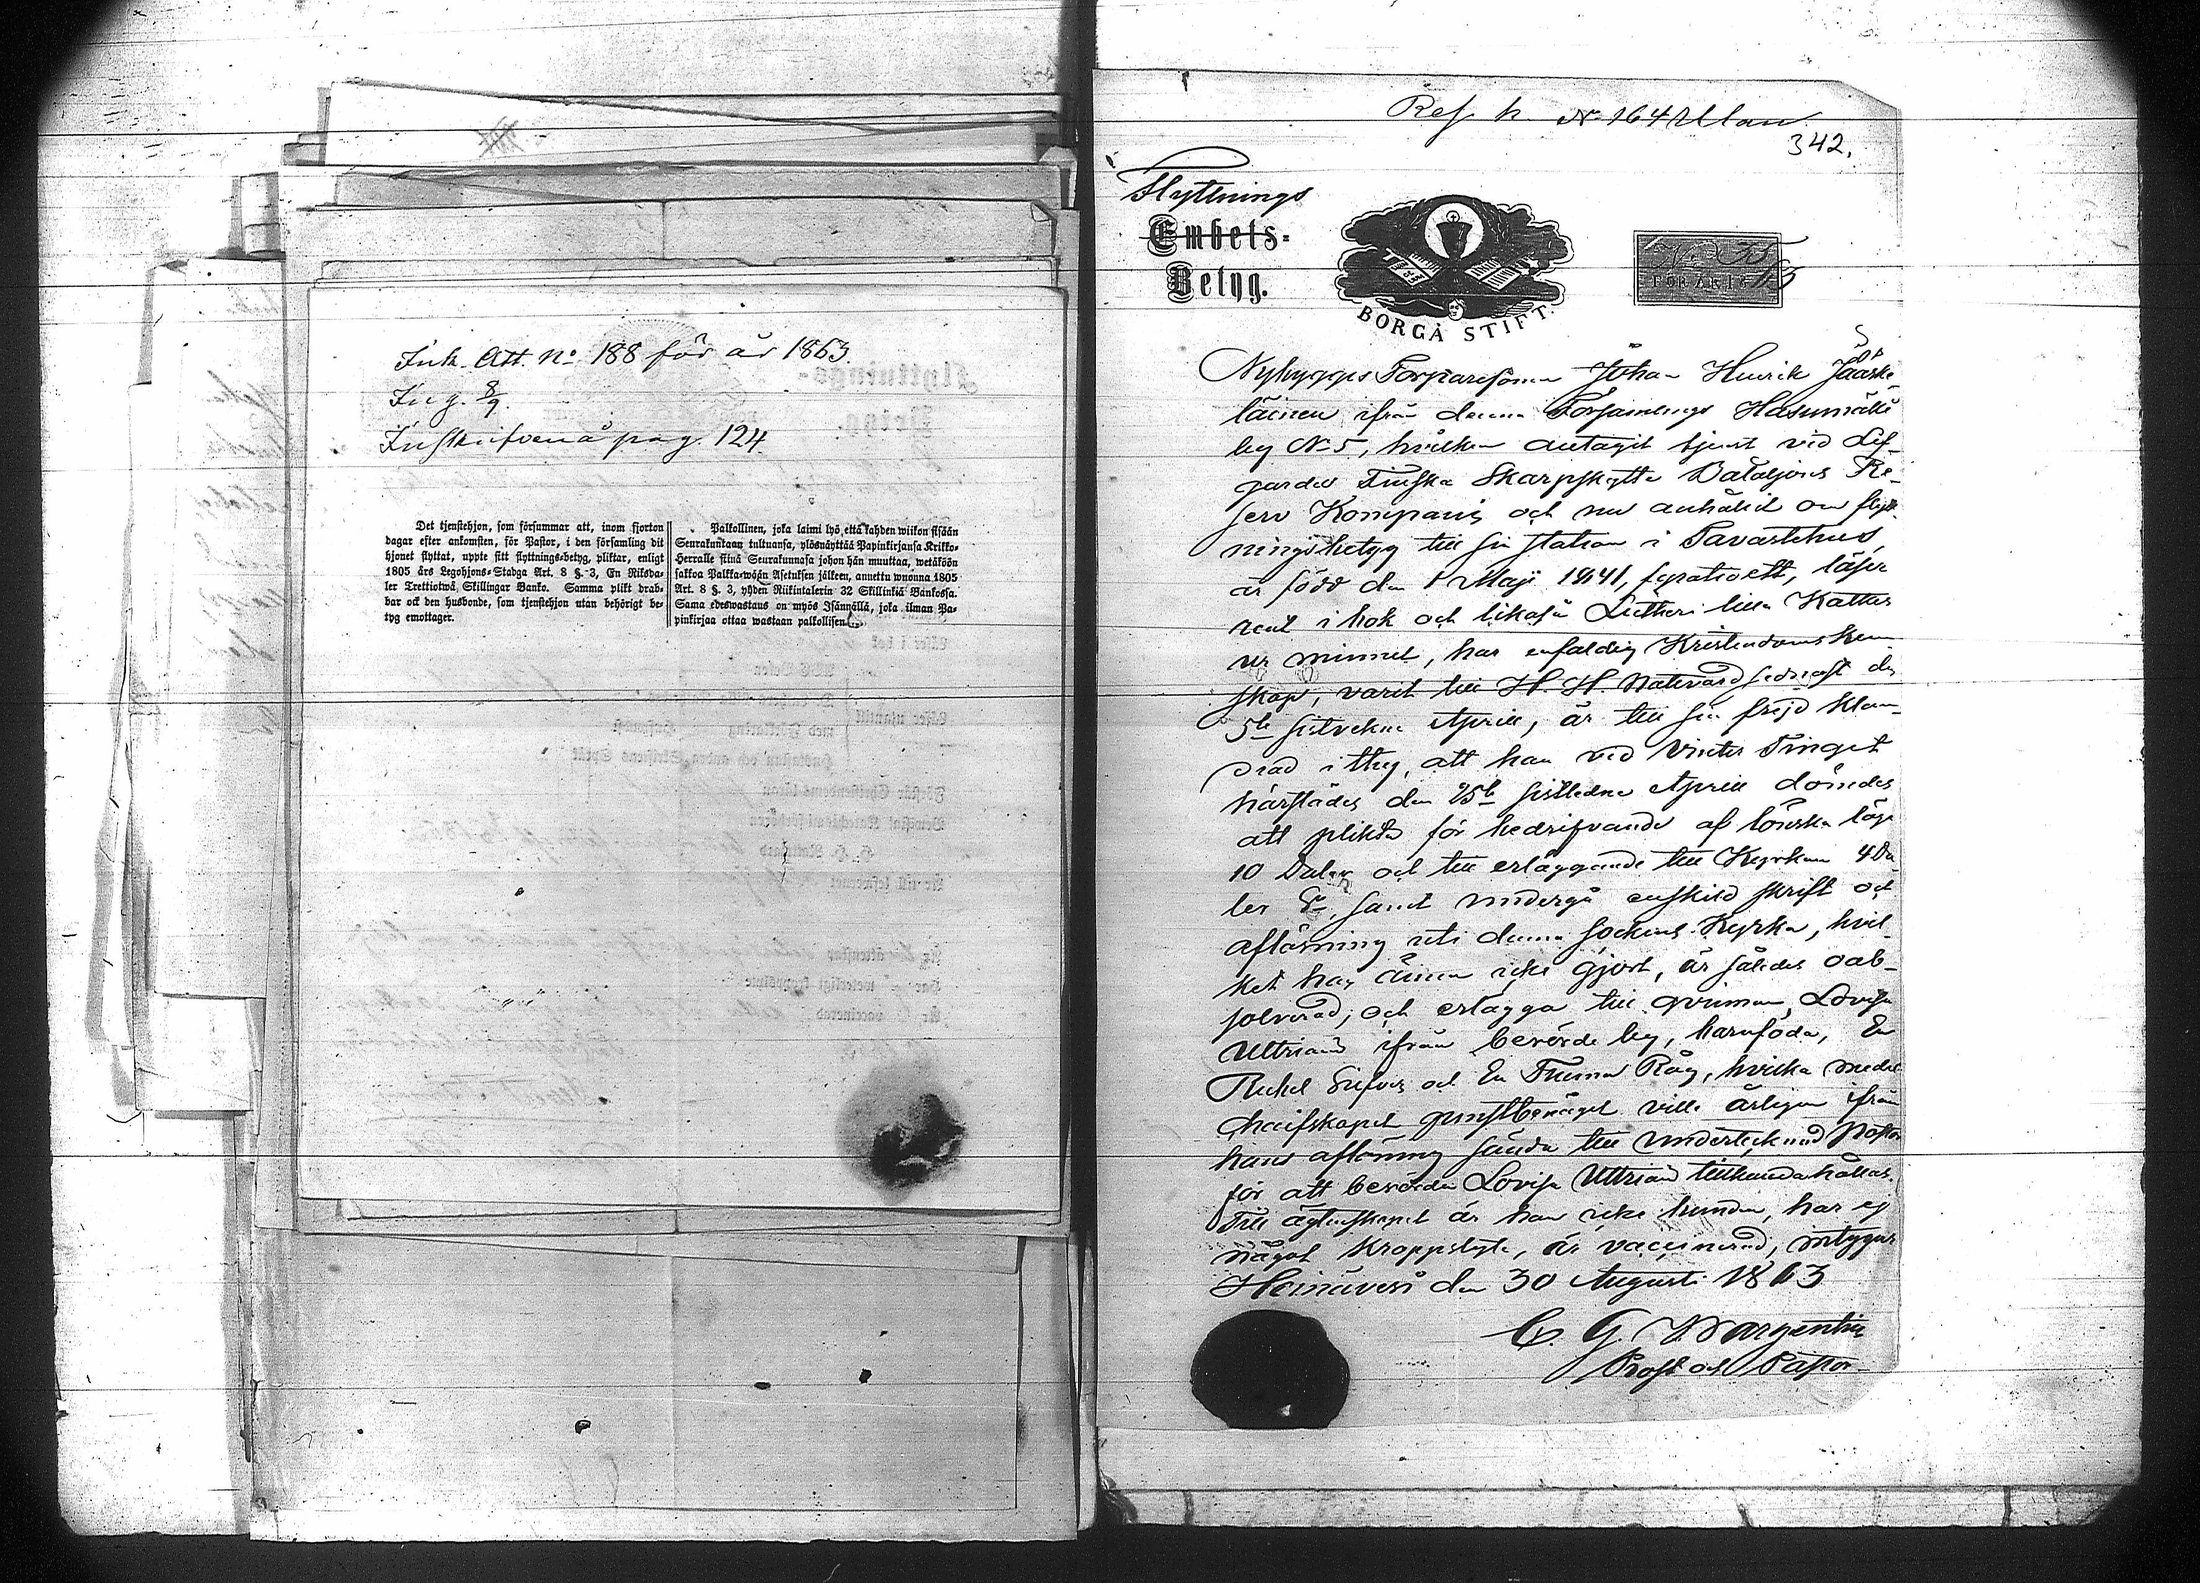 Ink. Att. No 188 för år 1863.
Ing. 8/9.
Inskrifven å pag. 124.
Det tjenstehjon, som försummar att, inom fjorton
dagar efter ankomsten, för Pastor, i den församling dit
hjonet flyttat, uppte sitt flyttnings-betyg, pliktar, enligt
1805 års Legohjons-Stadga Art. 8 §. 3, En Riksda-
ler Trettiotwå Skillingar Banko. Samma plikt drab-
bar ock den husbonde, som tjenstehjon utan behörigt be-
tyg emottager.
Palkollinen, joka laimi lyö, että kahden wiikon sisään
Seurakuntaan tultuansa, ylösnäyttää Papinkirjansa Kirkko-
Herralle siinä Seurakunnasa johon hän muuttaa, wetäköön
sakkoa Palkka-wään Asetuksen jälkeen, annettu wuonna 1805
Art. 8 §. 3, yhden Riikintalerin 32 Skillinkiä Bankossa.
Sama edeswastaus on myös Isännällä, joka ilman Pa-
pinkirjaa ottaa wastaan palkollisen.
Res. k. No 164 Ulan
342.
Flyttnings
Embets-
Betyg.
BORGÅ STIFT.
FÖR ÅR 18
Nybygges Torparesonen Johan Henrik Jääske-
läinen ifrån denna Församlings Hasumäki
by No 5, hvilken antagit tjenst vid Lif-
gardes Finska Skarpskytte Bataljons Re-
serv Kompani och nu anhållit om flytt-
ningsbetyg till sin station i Tavastehus,
är född den 1 Maji 1841, fyrationett, läser
rent i bok och likaså Lutheri lilla Kattes
ur minnet, har enfaldig Kristendoms kun-
skap, varit till H. H. Nattvard sednast den
5te sistvekne April, är till sin frejd klan-
drad i thy, att han vid Vinter Tinget
härstädes den 25te sistledne April dömdes
att plikta för bedrifvande af lönska läge
10 Daler och till erläggande till Kyrkan 4 Da-
ler Sr, samt undergå enskild skrift och
aflösning uti denna sockens Kyrka, hvil-
ket han ännu icke gjort, är således oab-
solverad; och erlägga till qvinnan Lovisa
Ultriain ifrån berörde by, barnföda, En
Rubel Silfver och En Tunna Råg, hvilka medel
chaifskapet gunstbenäget ville årligen ifrån
hans aflöning sända till undertecknad Pastor
för att berörda Lovisa Ultriain tillhandahållas.
Till ägtenskapet är han icke bunden, har ej
något kroppslyte, är vaccinerad, intygar
Heinävesi den 30 Augusti 1863
C. G. Wargentin
Prost och Pastor